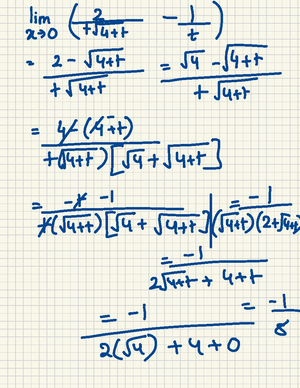 lim x→0 ( 2 / t√4+t − 1/t )
= 2 − √4+t / t√4+t = √4 − √4+t / t√4+t
= 4 − (4+t) / t(√4+t) [√4 + √4+t]
= −t −1 / t(√4+t) [√4 + √4+t] | = −1 / (√4+t)(2+√4+t)
= −1 / 2√4+t + 4+t
= −1 / 2(√4) + 4 + 0 = −1/8